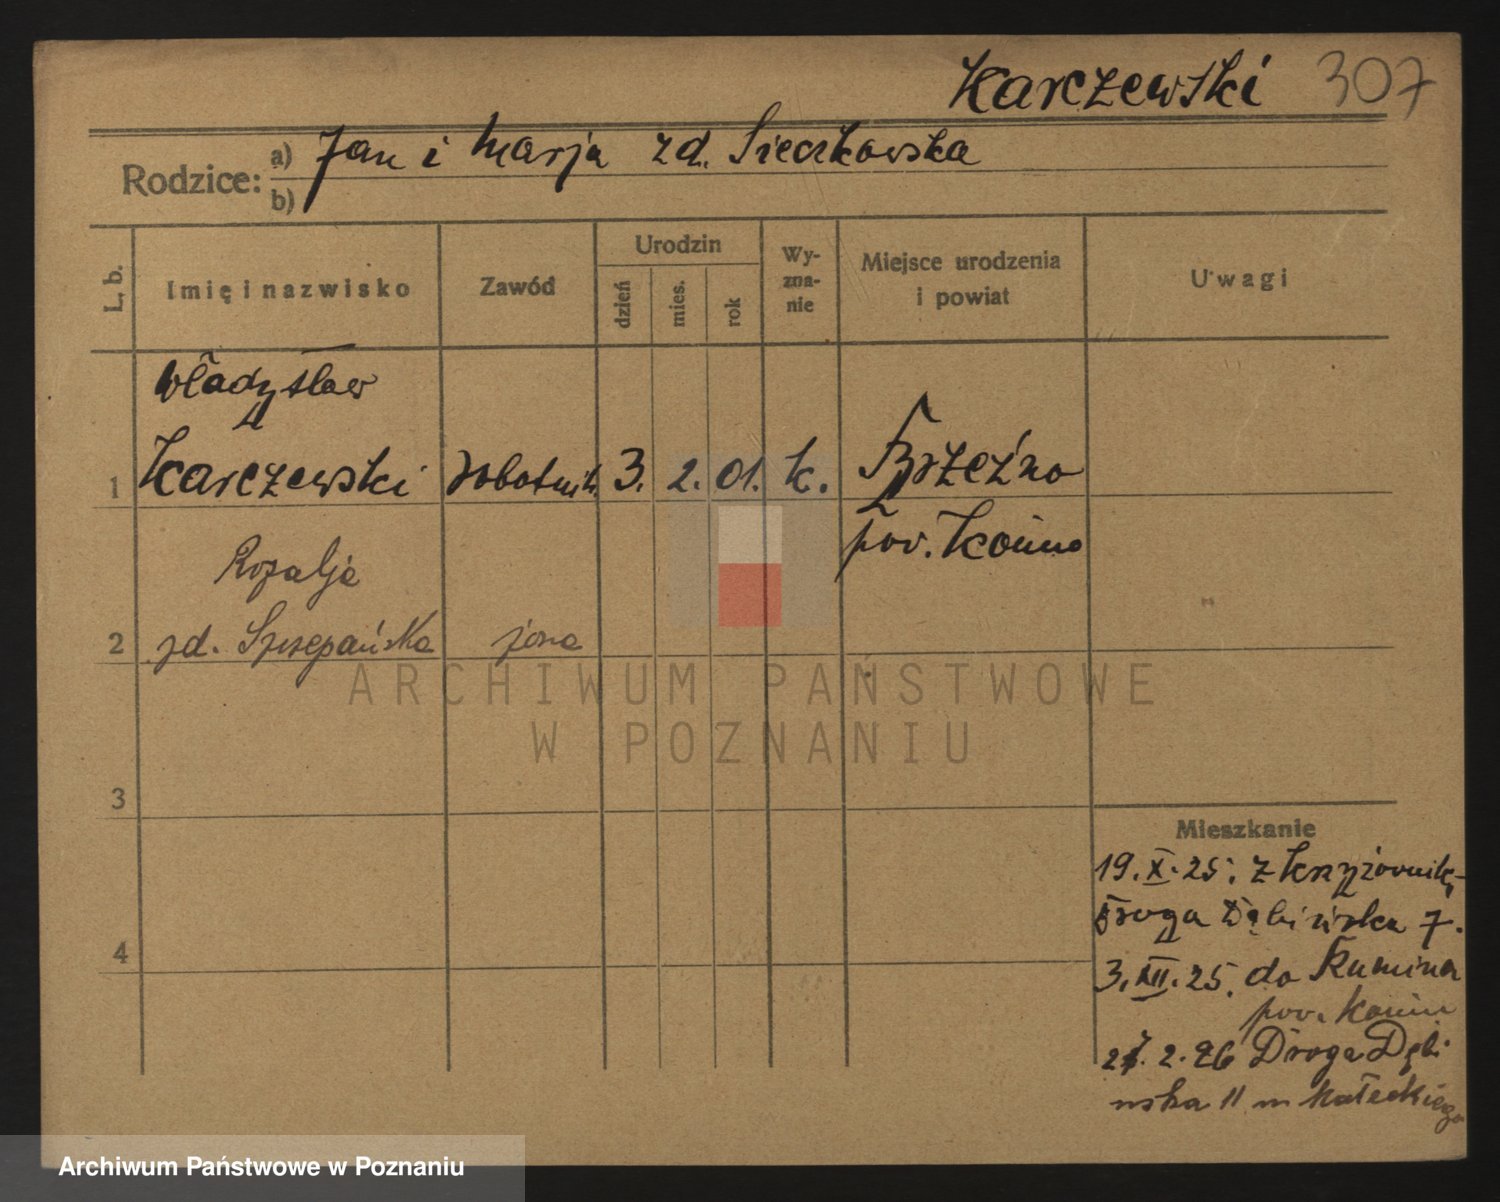 Karczewski 307
Rodzice: a) Jan i Marja zd. Sieczkowska
b)
L. b. Imię i nazwisko Zawód Urodzin dzień mies. rok Wyznanie Miejsce urodzenia i powiat Uwagi
Władysław
1 Karczewski robotnik. 3. 2. 01. k. Brzeźno
pow. Konin
Rozalja
2 zd. Szczepańska żona
3
4
Mieszkanie
19. X. 25. z Krzyżownik,
Droga Dębińska 7.
3. XII. 25. do
pow. Konin
27. 2. 26 Droga Dębi
nska 11 m Małeckiego
ARCHIWUM PAŃSTWOWE
W POZNANIU
Archiwum Państwowe w Poznaniu